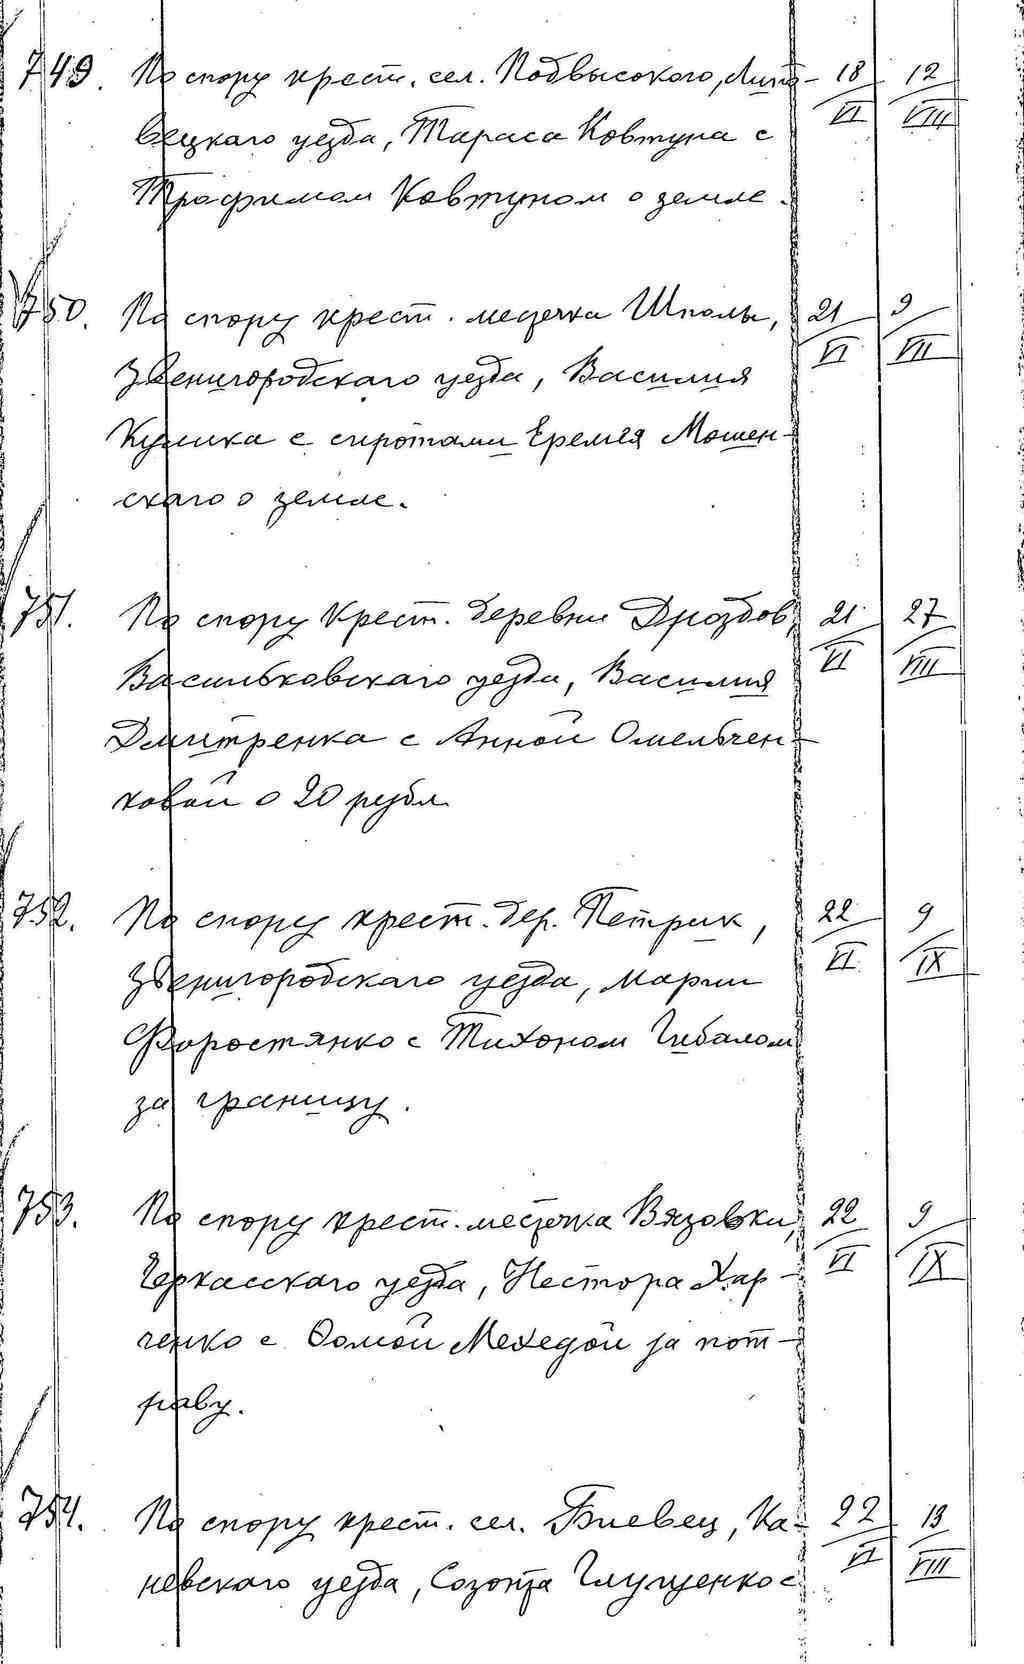 749. По спору крест. сел. Подвысокого, Липо- 18/VI 12/VIII
вецкаго уезда, Тараса Ковтуна с
Трофимом Ковтуном о земле.
750. По спору крест. местечка Шполы, 21/VI 9/VII
Звенигородскаго уезда, Василия
Кулика с сиротами Еремея Мошен-
скаго о земле.
751. По спору крест. деревни Дроздов, 21/VI 27/VIII
Васильковскаго уезда, Василия
Дмитренка с Анной Омельчен-
ковой о 20 рубл.
752. По спору крест. дер. Петрик, 22/VI 9/IX
Звенигородскаго уезда, Марии
Форостянко с Тихоном Чибалом
за границу.
753. По спору крест. местечка Вязовки, 22/VI 9/IX
Черкасскаго уезда, Нестора Хар-
ченко с Фомой Мехедой за пот-
раву.
754. По спору крест. сел. Биевец, Ка- 22/VI 13/VIII
невскаго уезда, Созонта Глущенко с